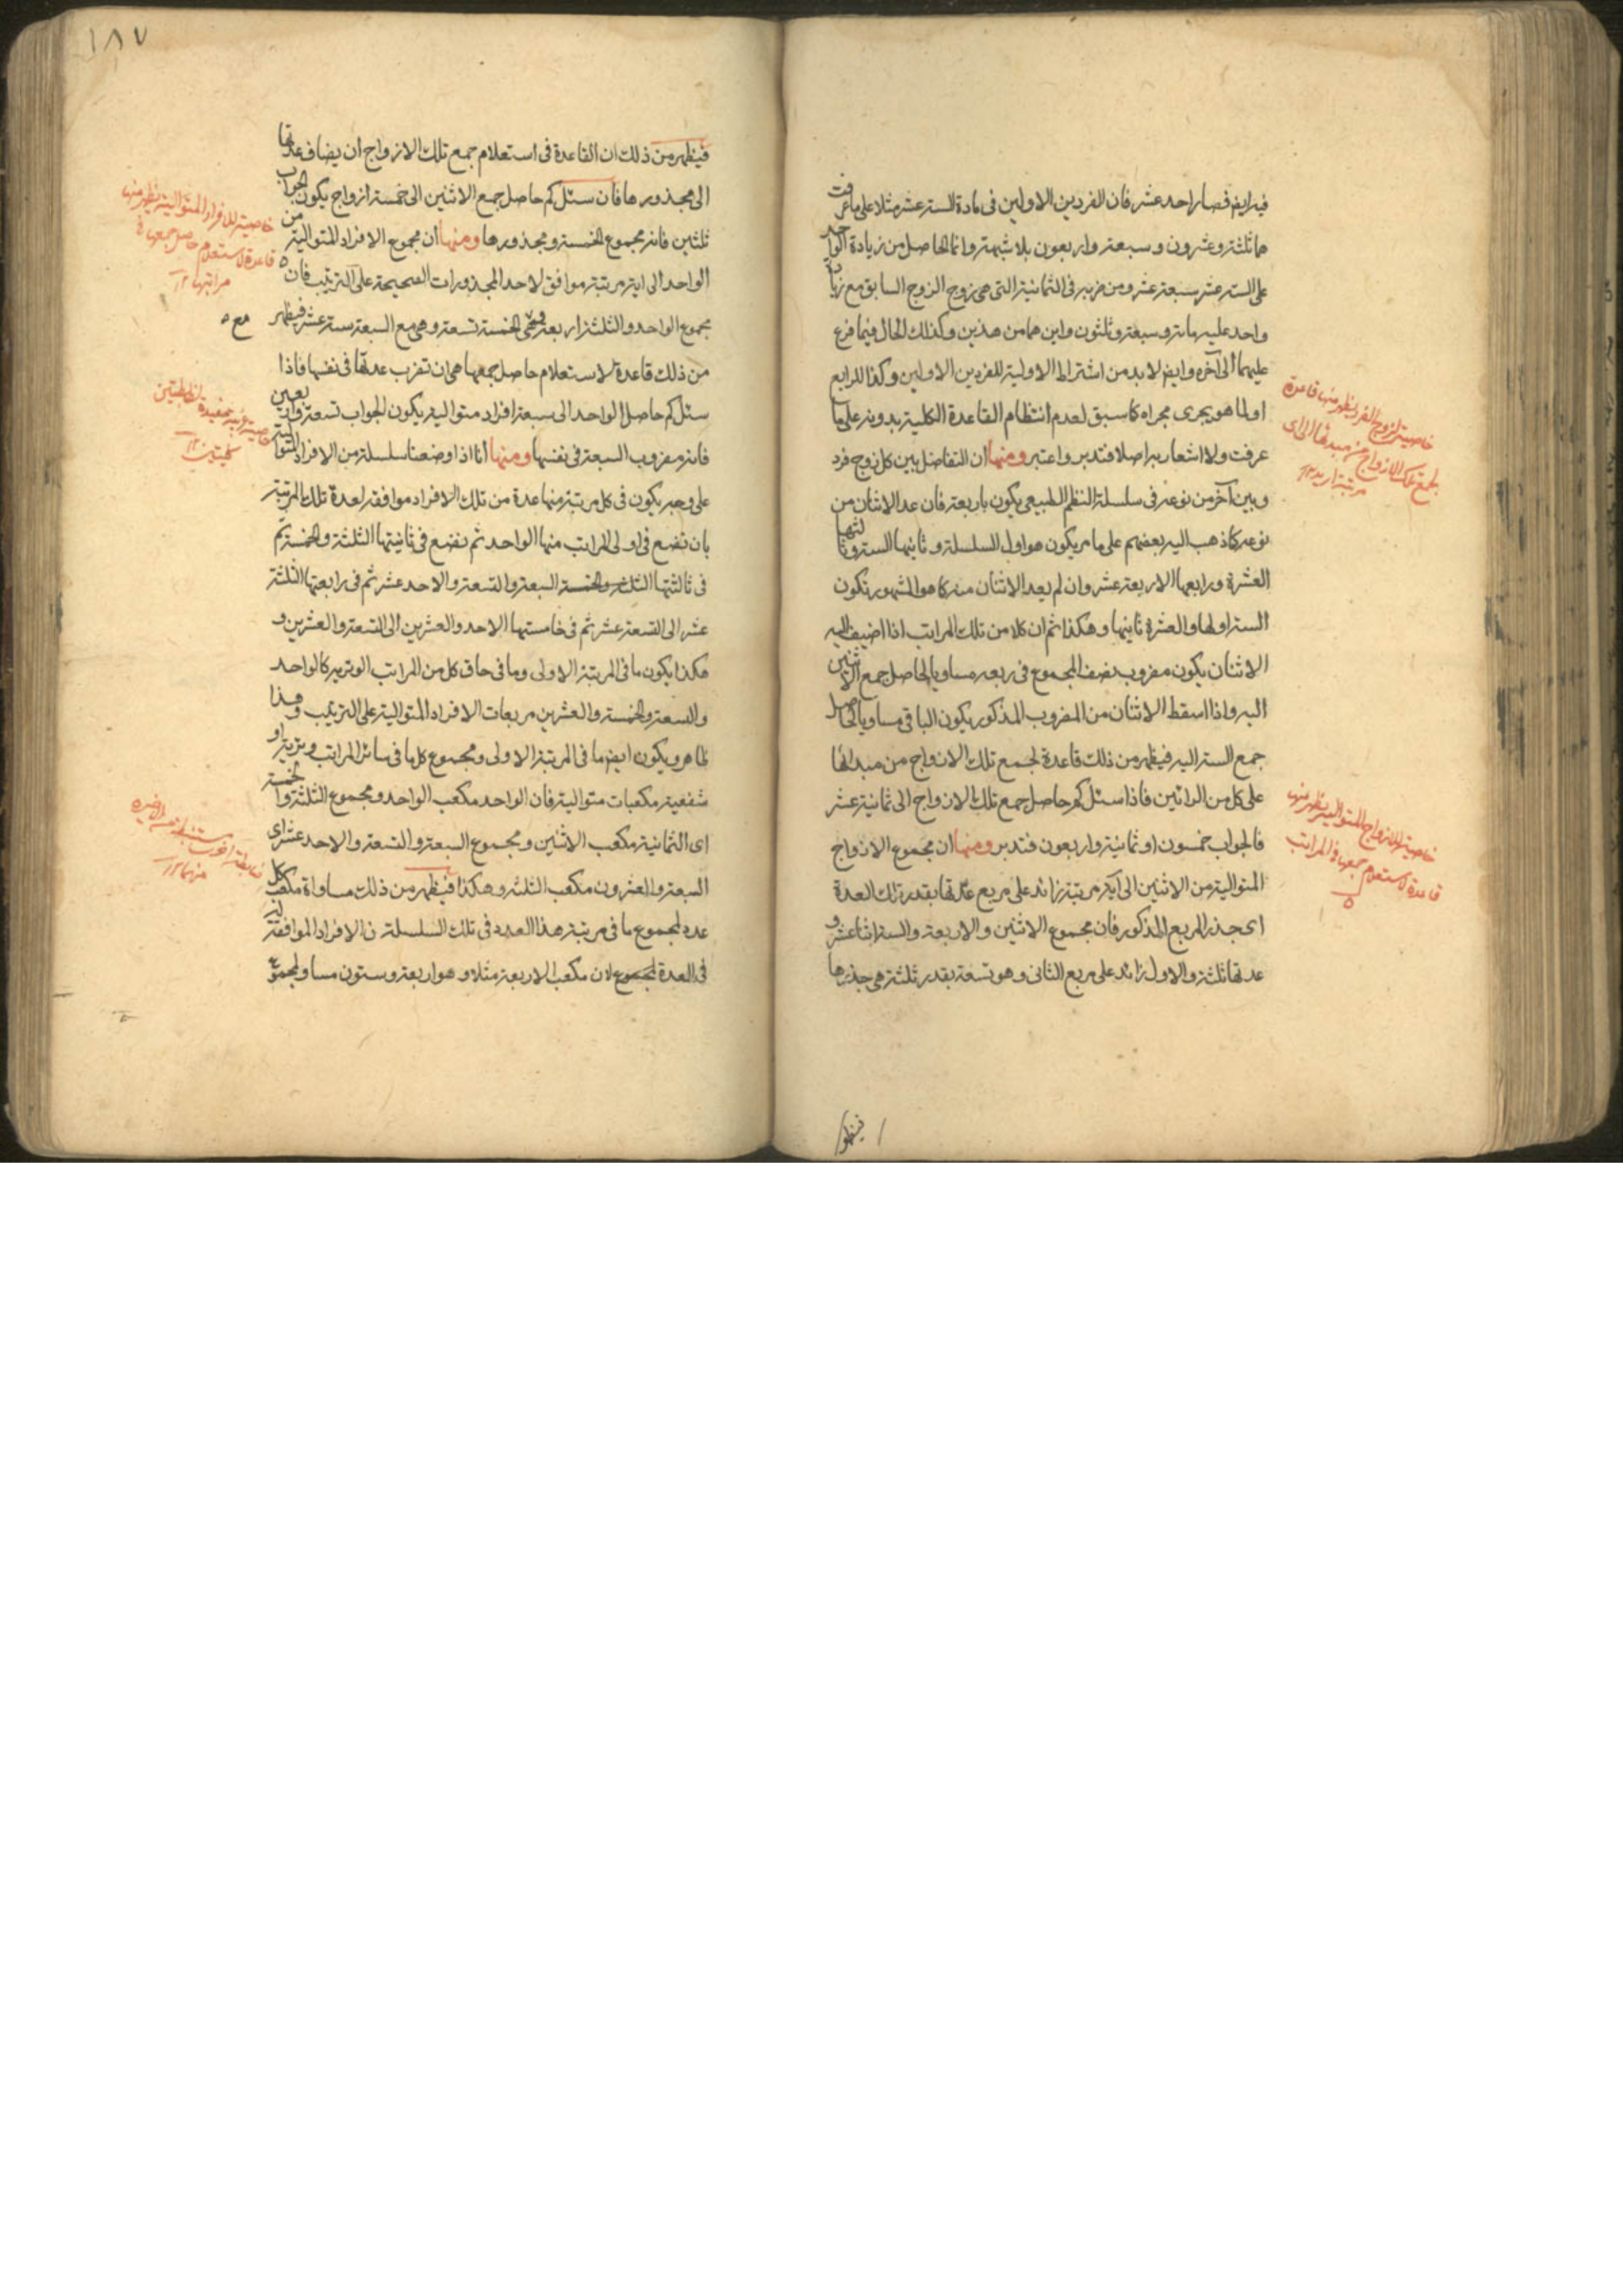 فيه ايض فصار احد عشر فان الفردين الاولين فى مادة الستة عشر مثلا على ما عرفت
هما ثلثة وعشرون وسبعة واربعون بلا شبهة وانما الحاصل من زيادة الواحد
على الستة عشر سبعة عشر ومن ضربه فى الثمانية التى هى زوج الزوج السابق مع زيادة
واحد عليه مائة وسبعة وثلثون واين هما من هذين وكذلك الحال فيما فرع
عليهما الى آخره وايض لا بد من اشتراط الاولية للفردين الاولين وكذا للرابع
او لما هو يجرى مجراه كما سبق لعدم انتظام القاعدة الكلية بدونه على ما
عرفت ولا اشعار به اصلا فتدبر واعتبر ومنها ان التفاضل بين كل زوج فرد
وبين آخر من نوعه فى سلسلة النظم الطبيعى يكون باربعة فان عد الاثنان من
نوعه كما ذهب اليه بعضهم على ما مر يكون هو اول السلسلة وثانيها الستة وثالثها
العشرة ورابعها الاربعة عشر وان لم يعد الاثنان منه كما هو المشهور تكون
الستة اولها والعشرة ثانيها وهكذا ثم ان كلا من تلك المراتب اذا اضيف اليه
الاثنان يكون مضروب نصف المجموع فى ربعه مساويا لحاصل جمع الاثنين
اليه واذا اسقط الاثنان من المضروب المذكور يكون الباقى مساويا لحاصل
جمع الستة اليه فيظهر من ذلك قاعدة لجمع تلك الازواج من مبدائها
على كل من الرائين فاذا سئل كم حاصل جمع تلك الازواج الى ثمانية عشر
فالجواب خمسون او ثمانية واربعون فتدبر ومنها ان مجموع الازواج
المتوالية من الاثنين الى اية مرتبة زائد على مربع عدتها بقدر تلك العدة
اى جذر المربع المذكور فان مجموع الاثنين والاربعة والستة اثنا عشر و
عدتها ثلثة والاول زائد على مربع الثانى وهو تسعة بقدر ثلثة هى جذرها
خاصية لزوج الفرد يظهر منها قاعدة
لجمع تلك الازواج من مبدئها الى اى
مرتبة اريد ١٢
خاصية للازواج المتوالية يظهر منها
قاعدة لاستعلام جمعها فى المراتب
فيظهر
١٨٧
فيظهر من ذلك ان القاعدة فى استعلام جمع تلك الازواج ان يضاف عدتها
الى مجذورها فان سئل كم حاصل جمع الاثنين الى خمسة ازواج يكون الجواب
ثلثين فانه مجموع الخمسة ومجذورها ومنها ان مجموع الافراد المتوالية من
الواحد الى اية مرتبة موافق لاحد المجذورات الصحيحة على الترتيب فان
مجموع الواحد والثلثة اربعة وهى مع الخمسة تسعة وهى مع السبعة ستة عشر فيظهر
من ذلك قاعدة لاستعلام حاصل جمعها هى ان تضرب عدتها فى نفسها فاذا
سئل كم حاصل الواحد الى سبعة افراد متوالية يكون الجواب تسعة واربعين
فانه مضروب السبعة فى نفسها ومنها انا اذا وضعنا سلسلة من الافراد المتوالية
على وجه يكون فى كل مرتبة منها عدة من تلك الافراد موافقة لعدة تلك المرتبة
بان نضع فى اولى المراتب منها الواحد ثم نضع فى ثانيتها الثلثة والخمسة ثم
فى ثالثتها الثلثة والخمسة السبعة والتسعة والاحد عشر ثم فى رابعتها الثلثة
عشر الى التسعة عشر ثم فى خامستها الاحد والعشرين الى التسعة والعشرين و
هكذا يكون ما فى المرتبة الاولى وما فى حاق كل من المراتب الوترية كالواحد
والتسعة والخمسة والعشرين مربعات الافراد المتوالية على الترتيب وهذا
ظاهر ويكون ايض ما فى المرتبة الاولى ومجموع كل ما فى سائر المراتب وترية او
شفعية مكعبات متوالية فان الواحد مكعب الواحد ومجموع الثلثة والخمسة
اى الثمانية مكعب الاثنين ومجموع السبعة والتسعة والاحد عشر اى
السبعة والعشرون مكعب الثلثة وهكذا فيظهر من ذلك مساواة مكعب كل
عدد لمجموع ما فى مرتبة هذا العدد فى تلك السلسلة من الافراد الموافقة له
فى العدة لمجموع لان مكعب الاربعة مثلا وهو اربعة وستون مساو لمجموع
خاصية للافراد المتوالية يظهر منها
قاعدة لاستعلام حاصل جمعها فى
مراتبها ١٢
خاصية غريبة مفيدة لضابطتين
كليتين ١٢